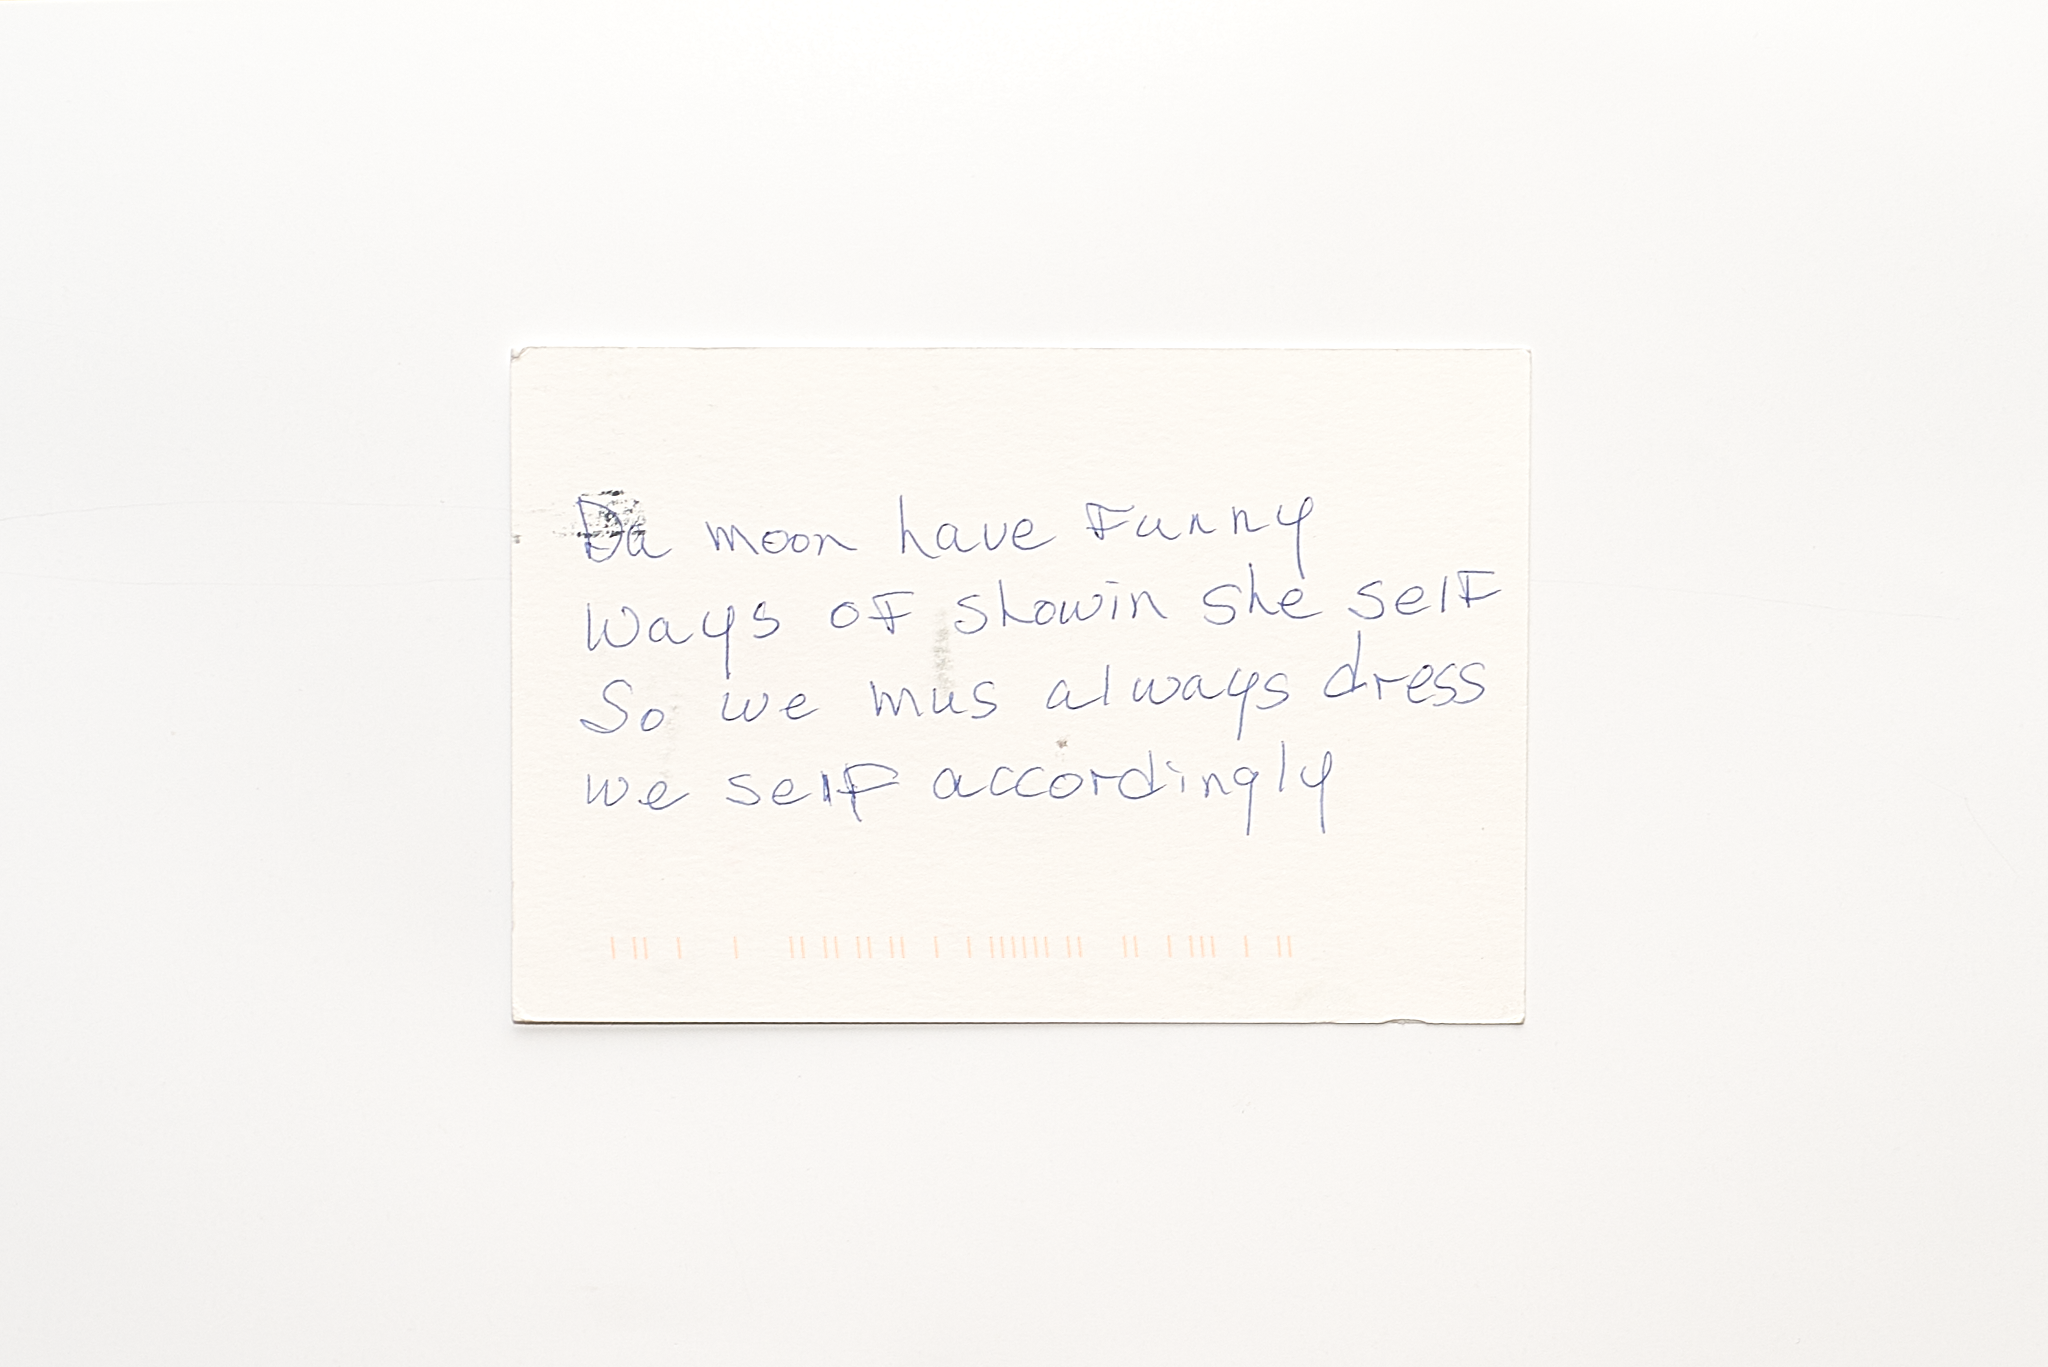 Da moon have Funny
Ways oF showin she selF
So we mus always dress
we selF accordingly